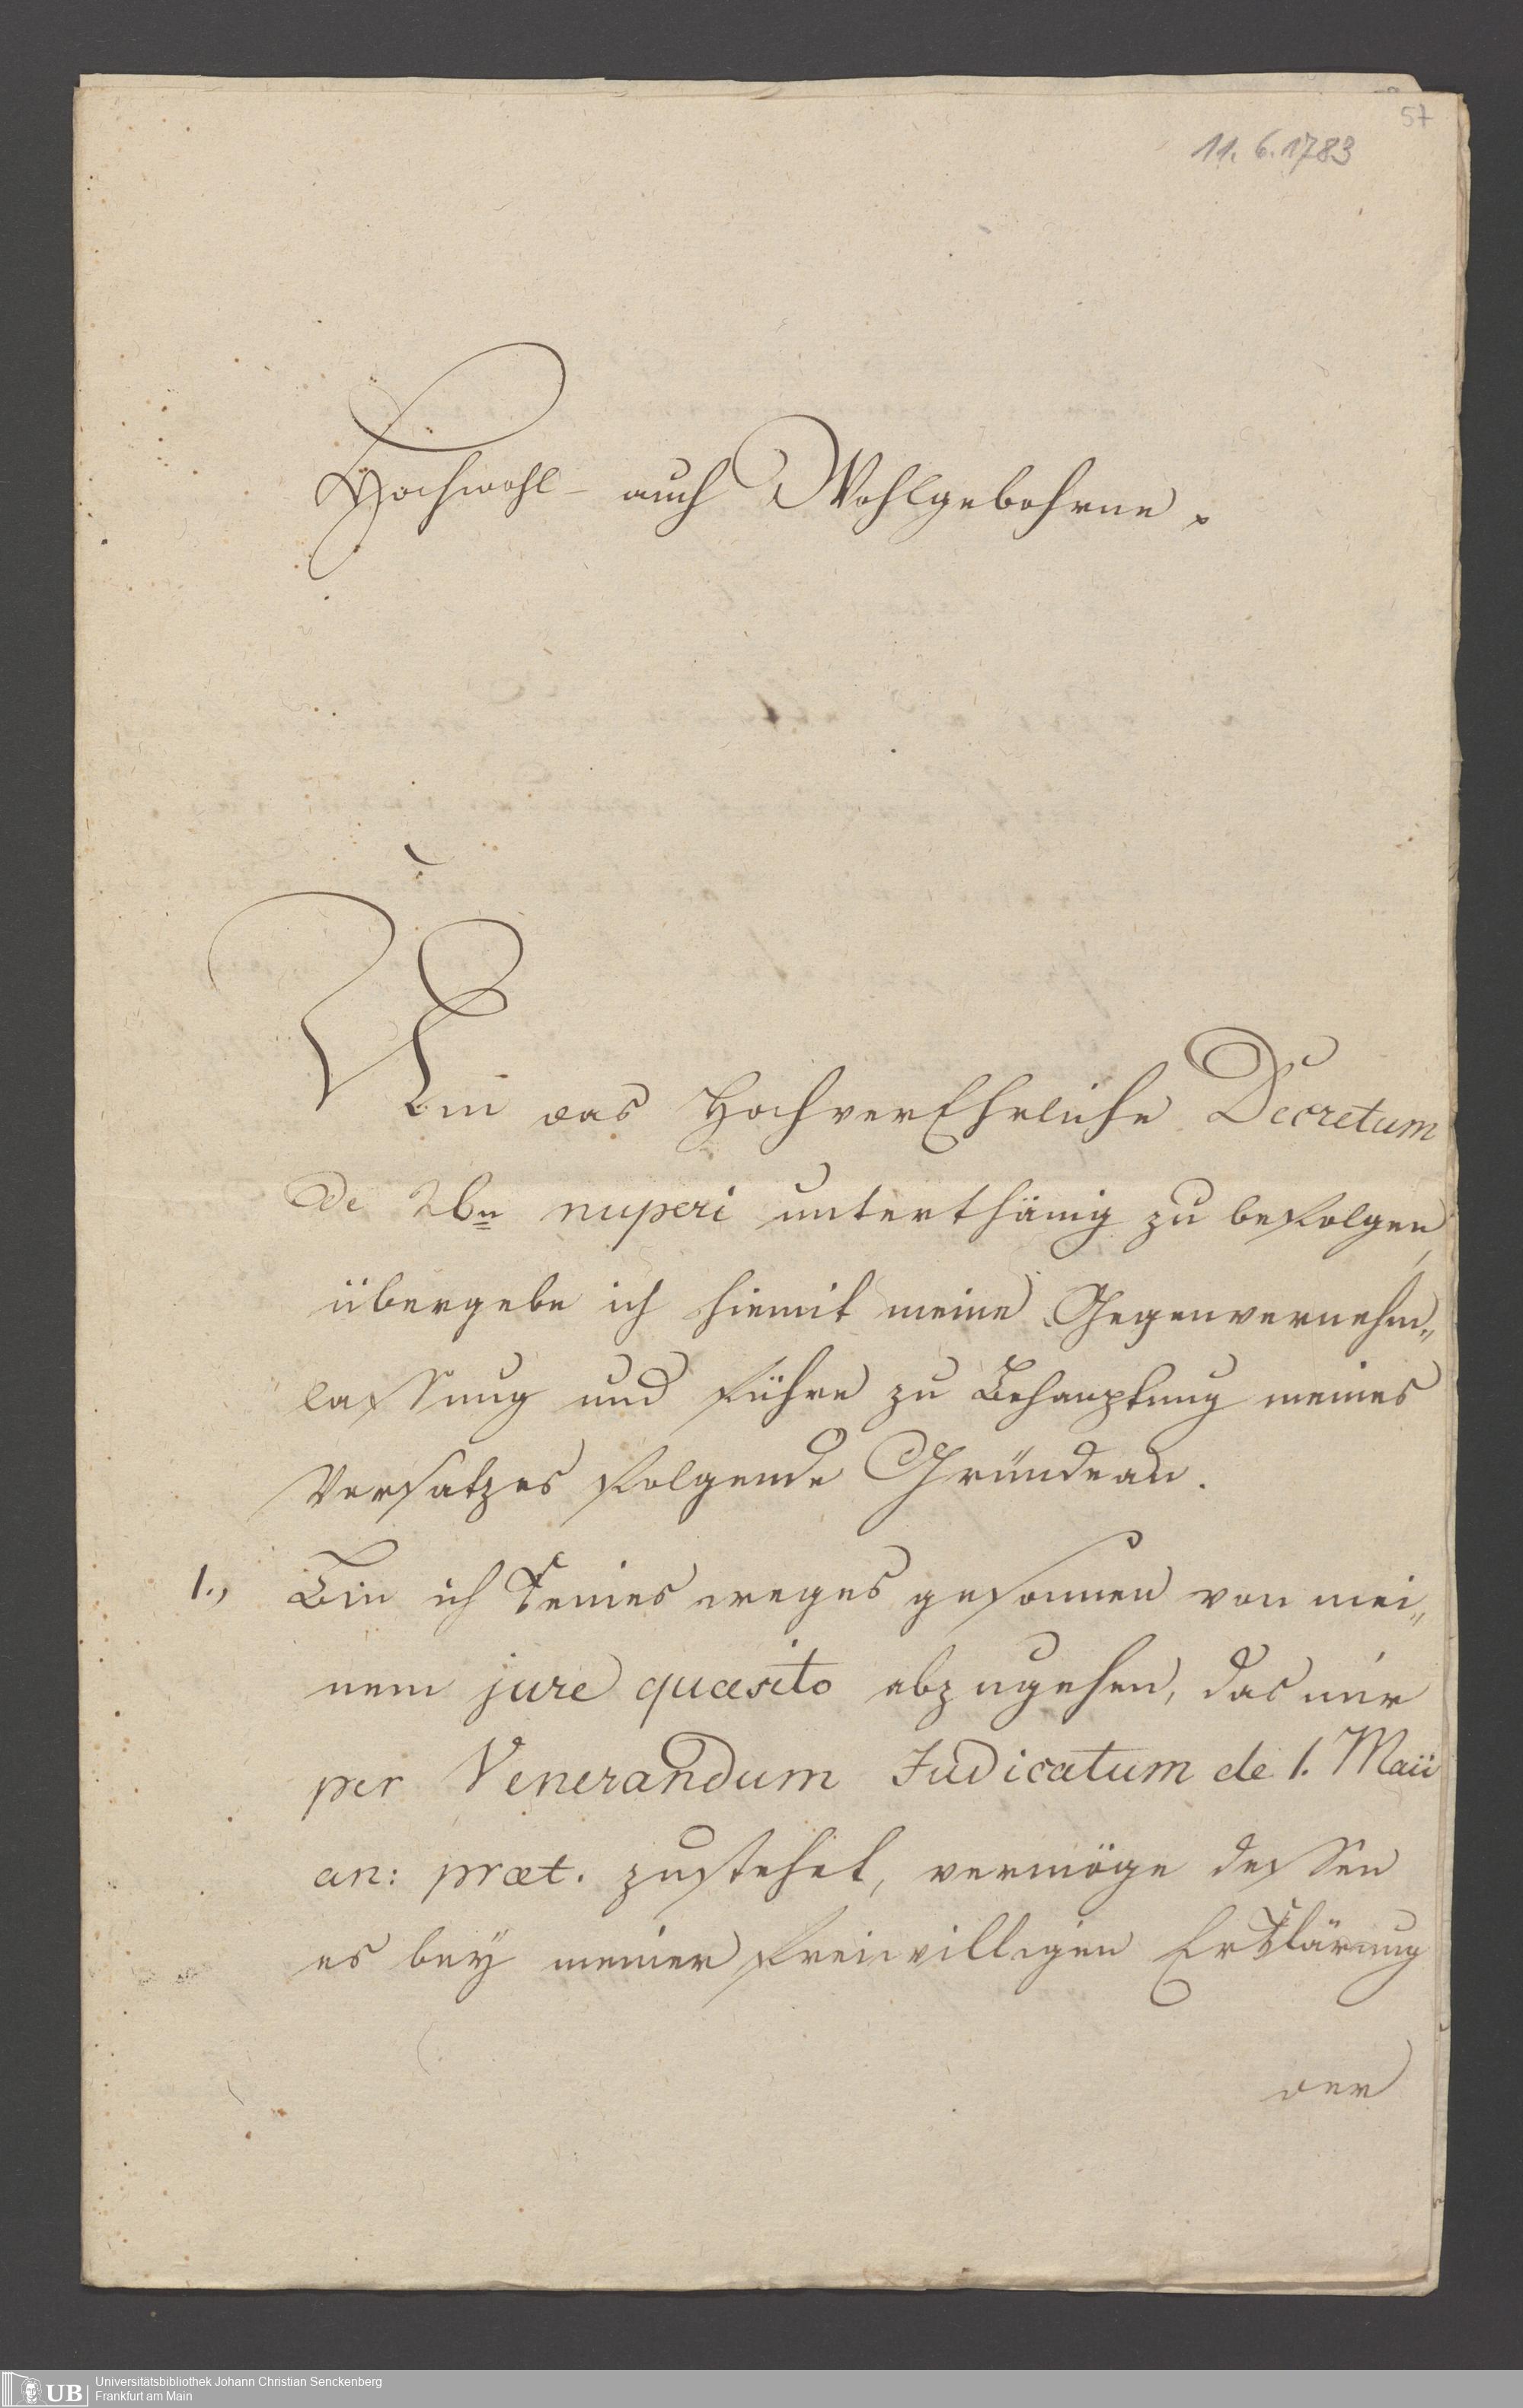 57
11. 6. 1783
Hochwohl- auch Wohlgebohrne.
Um das HochverEhrliche Decretum
de 26n nuperi unterthänig zu befolgen,
übergebe ich hiemit meine Gegenvernehm„
lassung und führe zu Behauptung meines
Versatzes folgende Gründe an.
1., Bin ich keines weges gesonnen von mei„
nem jure quæsito abzugehen, das mir
per Venerandum Judicatum de 1. Maii
an: præt. zustehet, vermöge dessen
es beÿ meiner freiwilligen Erklärung
der
UB
Universitätsbibliothek Johann Christian Senckenberg
Frankfurt am Main